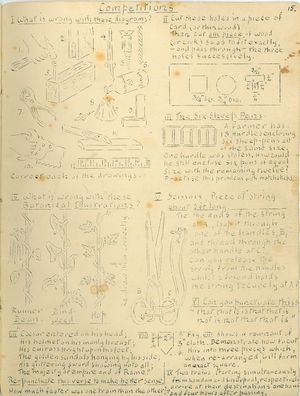 Competitions
15.
I What is wrong with these diagrams?
Correct each of the drawings.
II Cut these holes in a piece of
Card (or thin wood)
Then cut one piece of wood
(or cork) so as to fit exactly,
and pass through the three
holes successively.
III The Six Sheep Pens
A farmer has
13 Hurdles enclosing
six sheep-pens all
of the same size.
One hurdle was stolen. How could
he still enclose six pens of equal
size with the remaining twelve?
Practise this problem with matchsticks.
IV What is wrong with these
Botanical Illustrations?
Runner Bean
Bind Weed
Hop
V Scissors & Piece of string
Tie the ends of the string
Can you release the
string from the handles
while a friend holds
the string securely at A?
VI Can you punctuate this?
that that is is that that is
not is that that is not is
VII Caesar entered on his head,
His helmet on his manly breast;
His cuirass strongly upon his feet
The golden sandals hanging by his side;
His glittering sword showing unto all,
The Majesty of Empire and of Rome.
Repunctuate this verse to make better sense.
VIII Fig. shows a remnant of
cloth. Demonstrate how to cut
this into three pieces which,
when re-arranged will form
an exact square.
IX Two trains starting simultaneously
from London and Liverpool, respectively
reach their destinations one hour
and four hours after passing.
How much faster was one train than the other?